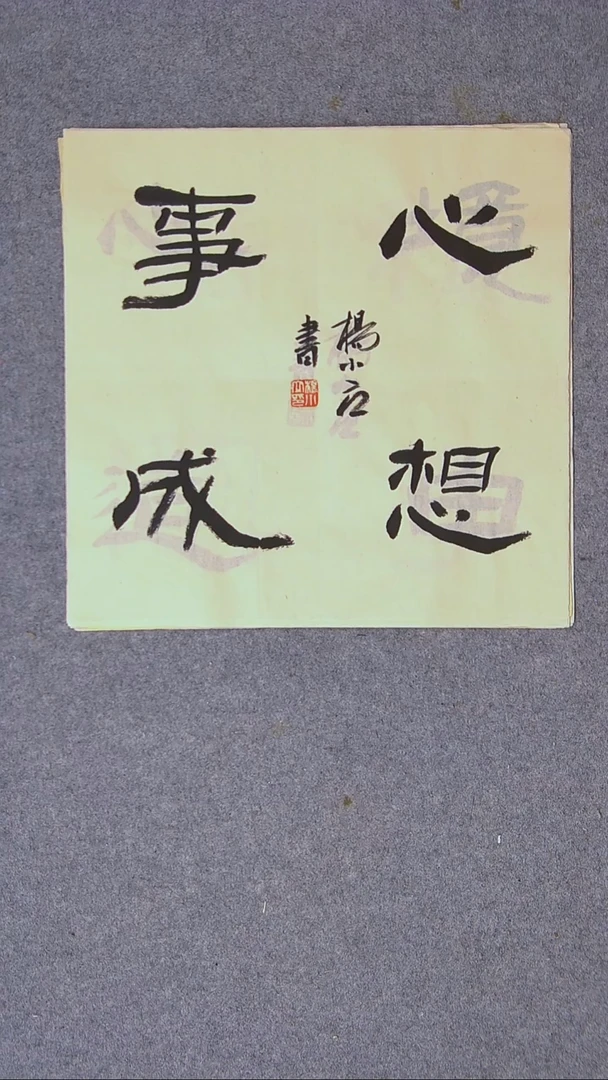 心想
事成
楊小店
書